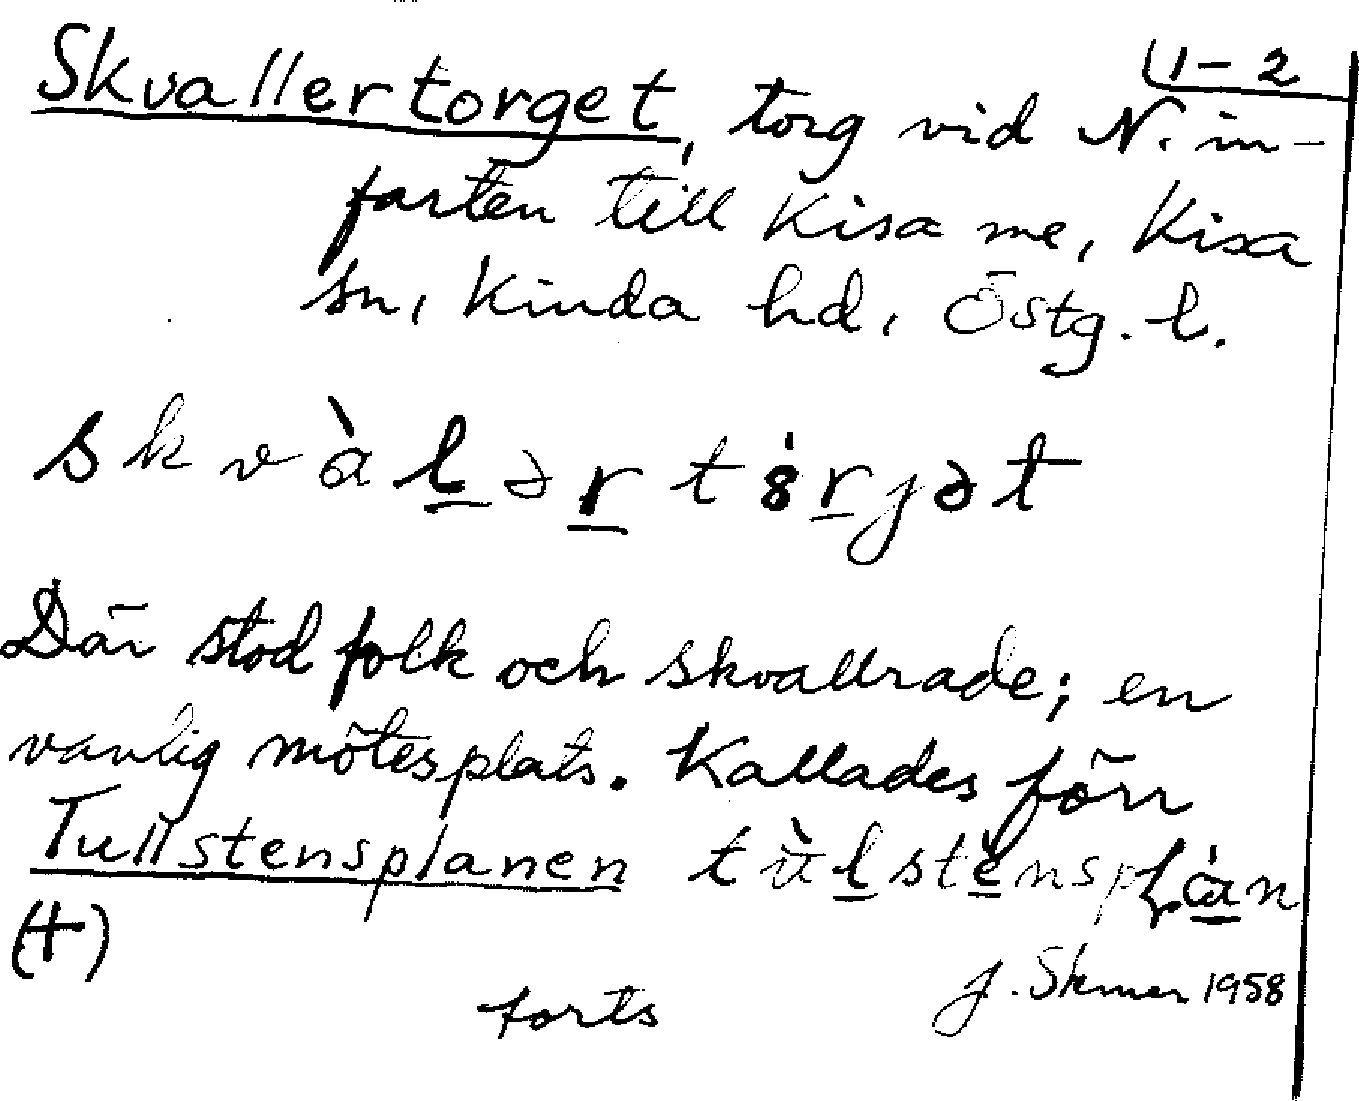 U-2
Skvallertorget, torg vid N. in-
farten till Kisa me, Kisa
sn, Kinda hd, Östg. l.
skvàlərtȯrjət
Där stod folk och skvallrade; en
vanlig mötesplats. Kallades förr
Tullstensplanen
(+)
J. 1958
forts